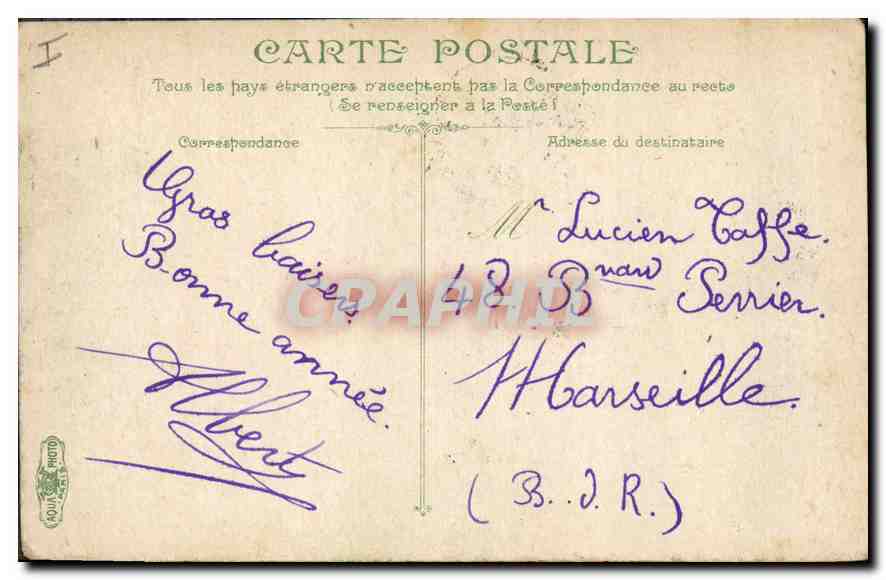 I
CARTE POSTALE
Tous les pays étrangers n'acceptent pas la Correspondance au recto
(Se renseigner a la Poste)
Correspondance
Gros baisers.
Bonne année.
Albert
Adresse du destinataire
Mr Lucien Taffe.
48 Bvard Perrier.
Marseille.
(B. d. R.)
AQUA PHOTO
PARIS
CPAPHIL